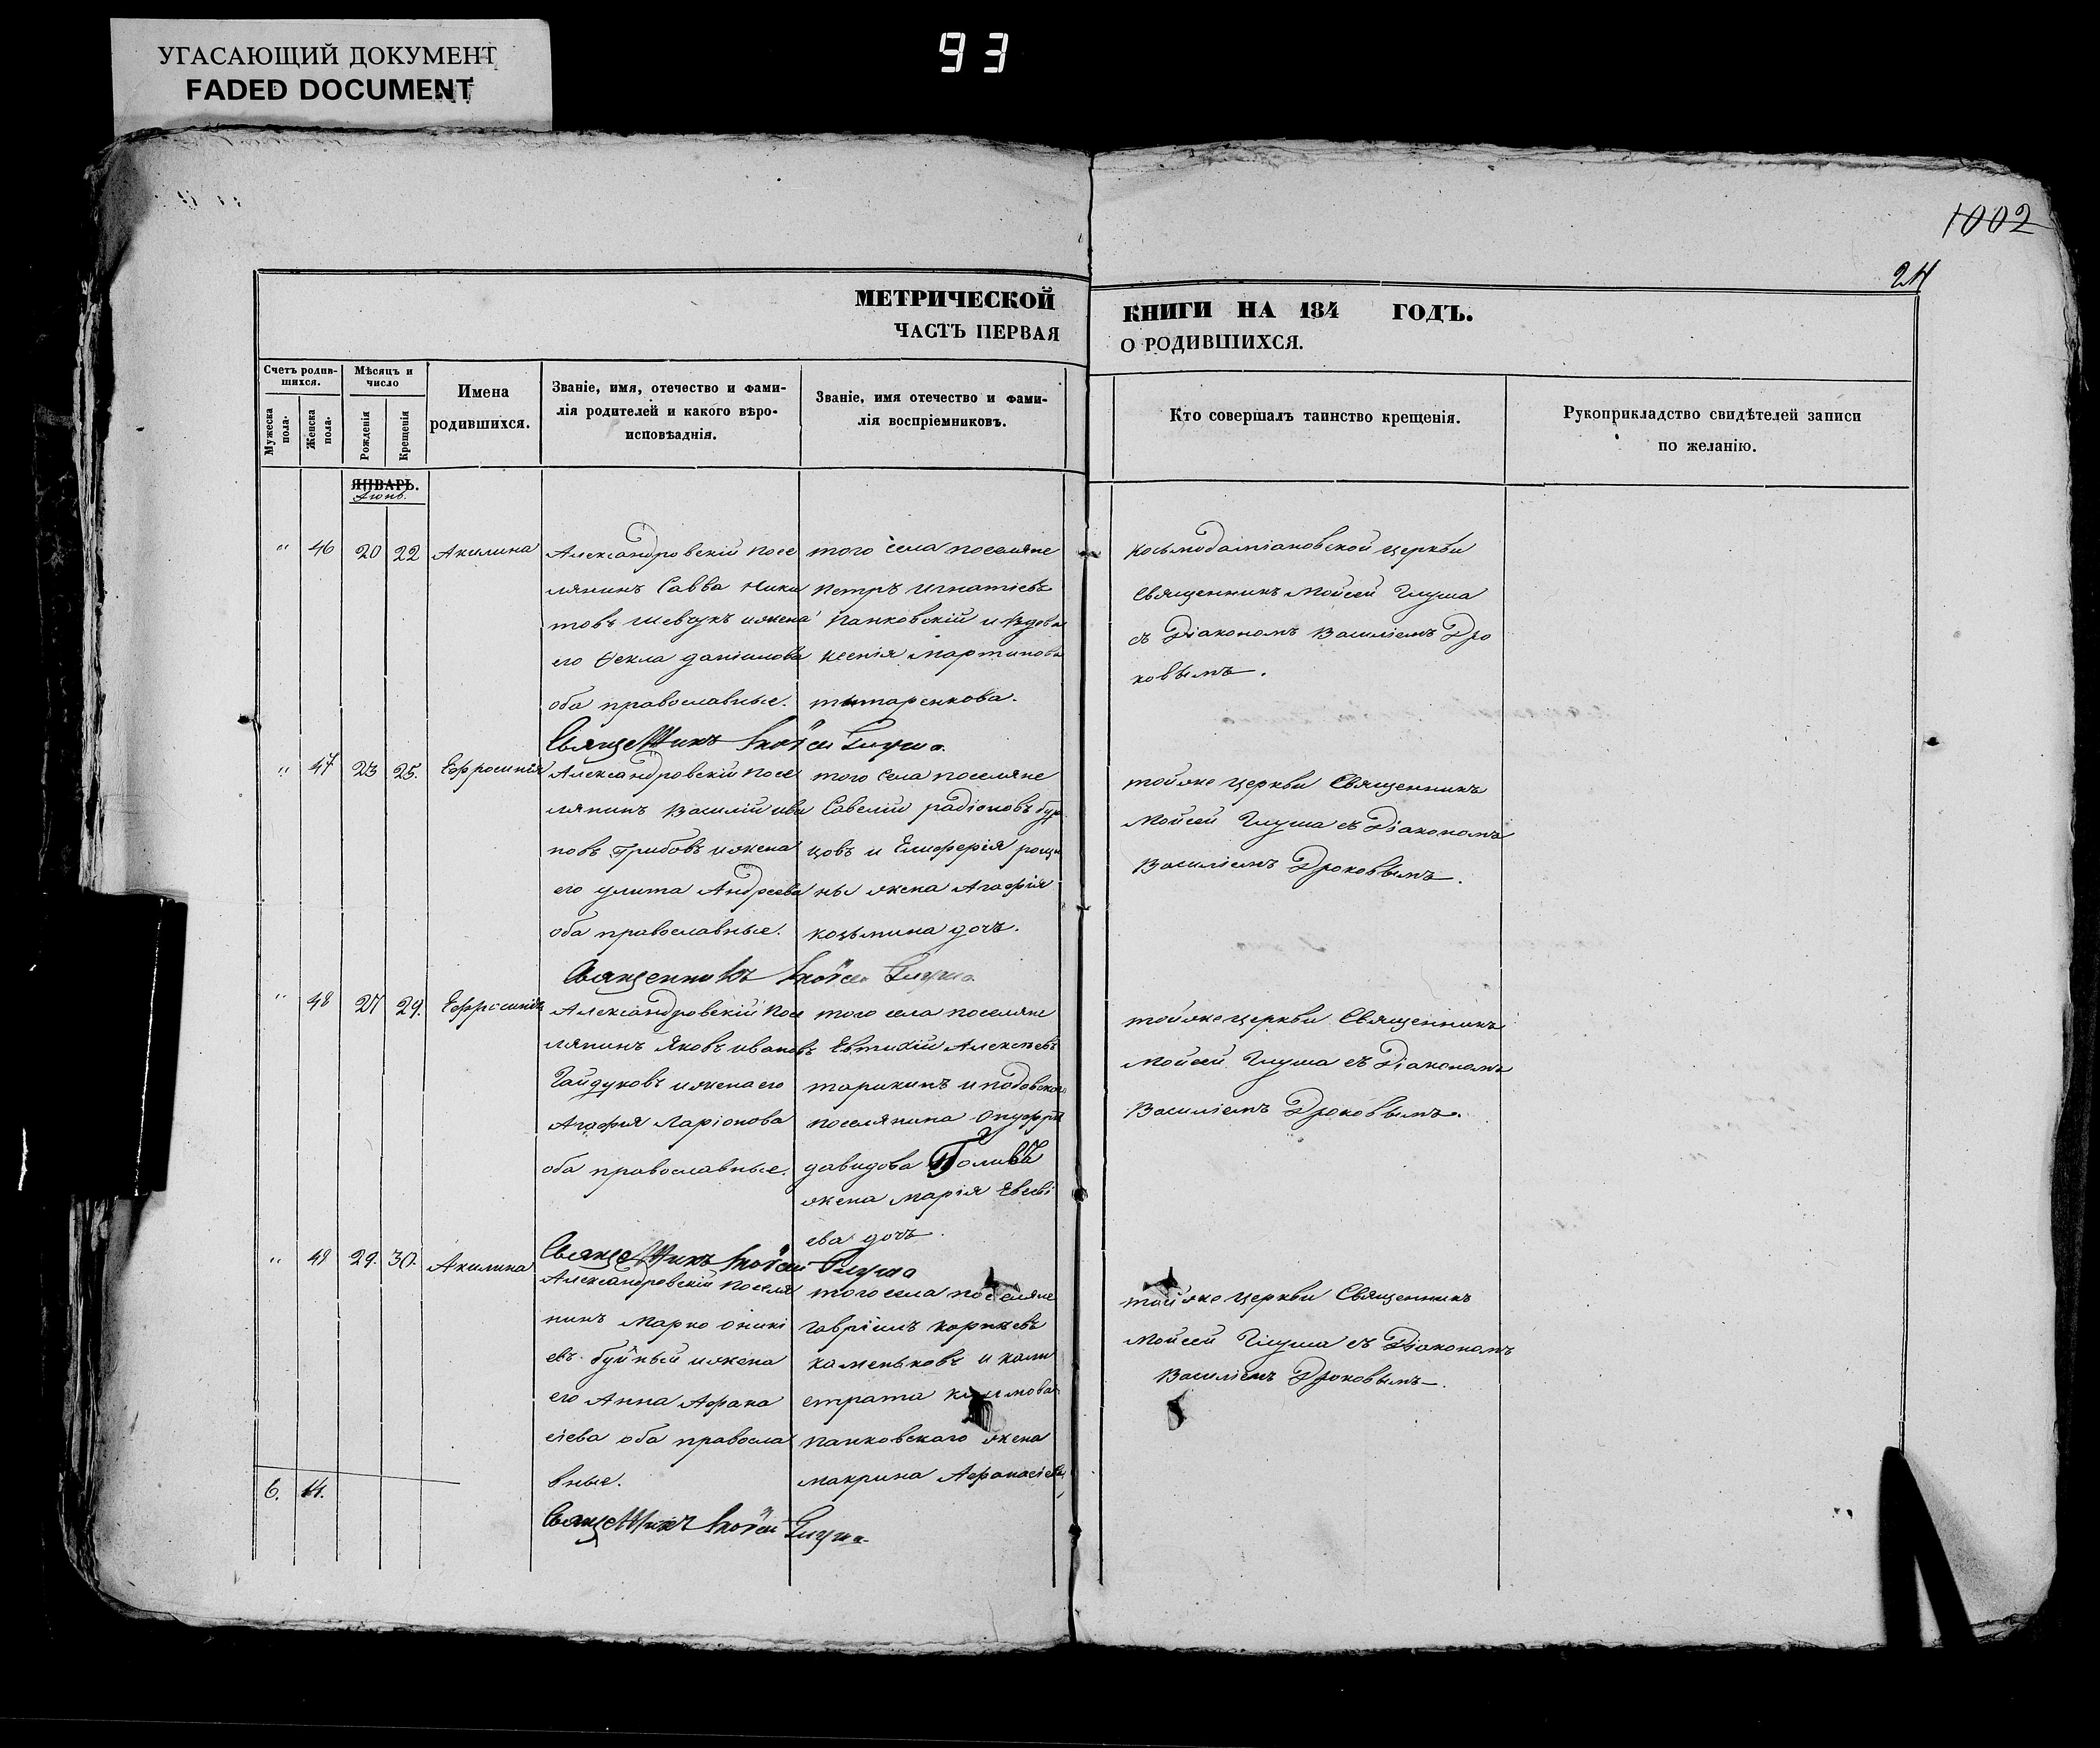 УГАСАЮЩИЙ ДОКУМЕНТ
FADED DOCUMENT
93
1002
24
МЕТРИЧЕСКОЙ
ЧАСТЬ ПЕРВАЯ
КНИГИ НА 184 ГОДЪ.
О РОДИВШИХСЯ.
Счетъ родив-
шихся.
Мужеска
пола.
Женска
пола.
Мѣсяцъ и
число
Рожденія
Крещенія
Имена
родившихся.
Званіе, имя, отечество и фами-
лія родителей и какого вѣро-
исповѣаднія.
Званіе, имя отечество и фами-
лія воспріемниковъ.
Кто совершалъ таинство крещенія.
Рукоприкладство свидѣтелей записи
по желанію.
ЯНВАРЬ.
Іюнь.
" 46 20 22 Акилина
Александровскій посе
лянинъ Савва Ники
товъ Шевчукъ и жена
его Ѳекла Даніилова
оба православные.
того села поселяне
Петръ Игнатіевъ
Панковскій и вдова
Ксенія Мартинова
титаренкова.
Косьмодаміановской церкви
Священникъ Мойсей Глуша
съ Діакономъ Василіемъ Дро
ковымъ.
Священникъ Моѵсей Глуша.
" 47 23 25. Ефросинія
Александровскій посе
лянинъ Василій Ива
новъ Грибовъ и жена
его Улита Андреева
оба православные.
того села поселяне
Савелій Радіоновъ бур
цовъ и Елисферія рощи
ны жена Агафія
козьмина дочь.
тойже церкви Священникъ
Мойсей Глуша съ Діакономъ
Василіемъ Дроковымъ.
Священникъ Моѵсей Глуша.
" 48 27 29. Ефросинія
Александровскій посе
лянинъ Яковъ Ивановъ
Гайдуковъ и жена его
Агафия Ларіонова
оба православные.
того села поселяне
Евтихій Алексѣевъ
тарикинъ и подовскаго
поселянина Онуфрія
давидова Поливы
жена Марія Евсеві
ева дочь.
тойже церкви Священникъ
Мойсей Глуша съ Діакономъ
Василіемъ Дроковымъ.
Священникъ Моѵсей Глуша
" 49 29. 30. Акилина
Александровскій поселя
нинъ Марко Оникі
евъ буйный и жена
его Анна Афана
сіева оба правосла
вные.
того села поселяне
Гавріилъ Корнѣевъ
каменьковъ и кали
страта климова
панковскаго жена
макрина Афанасіева
тойже церкви Священникъ
Мойсей Глуша съ Діакономъ
Василіемъ Дроковымъ.
6. 11.
Священникъ Моѵсей Глуша.